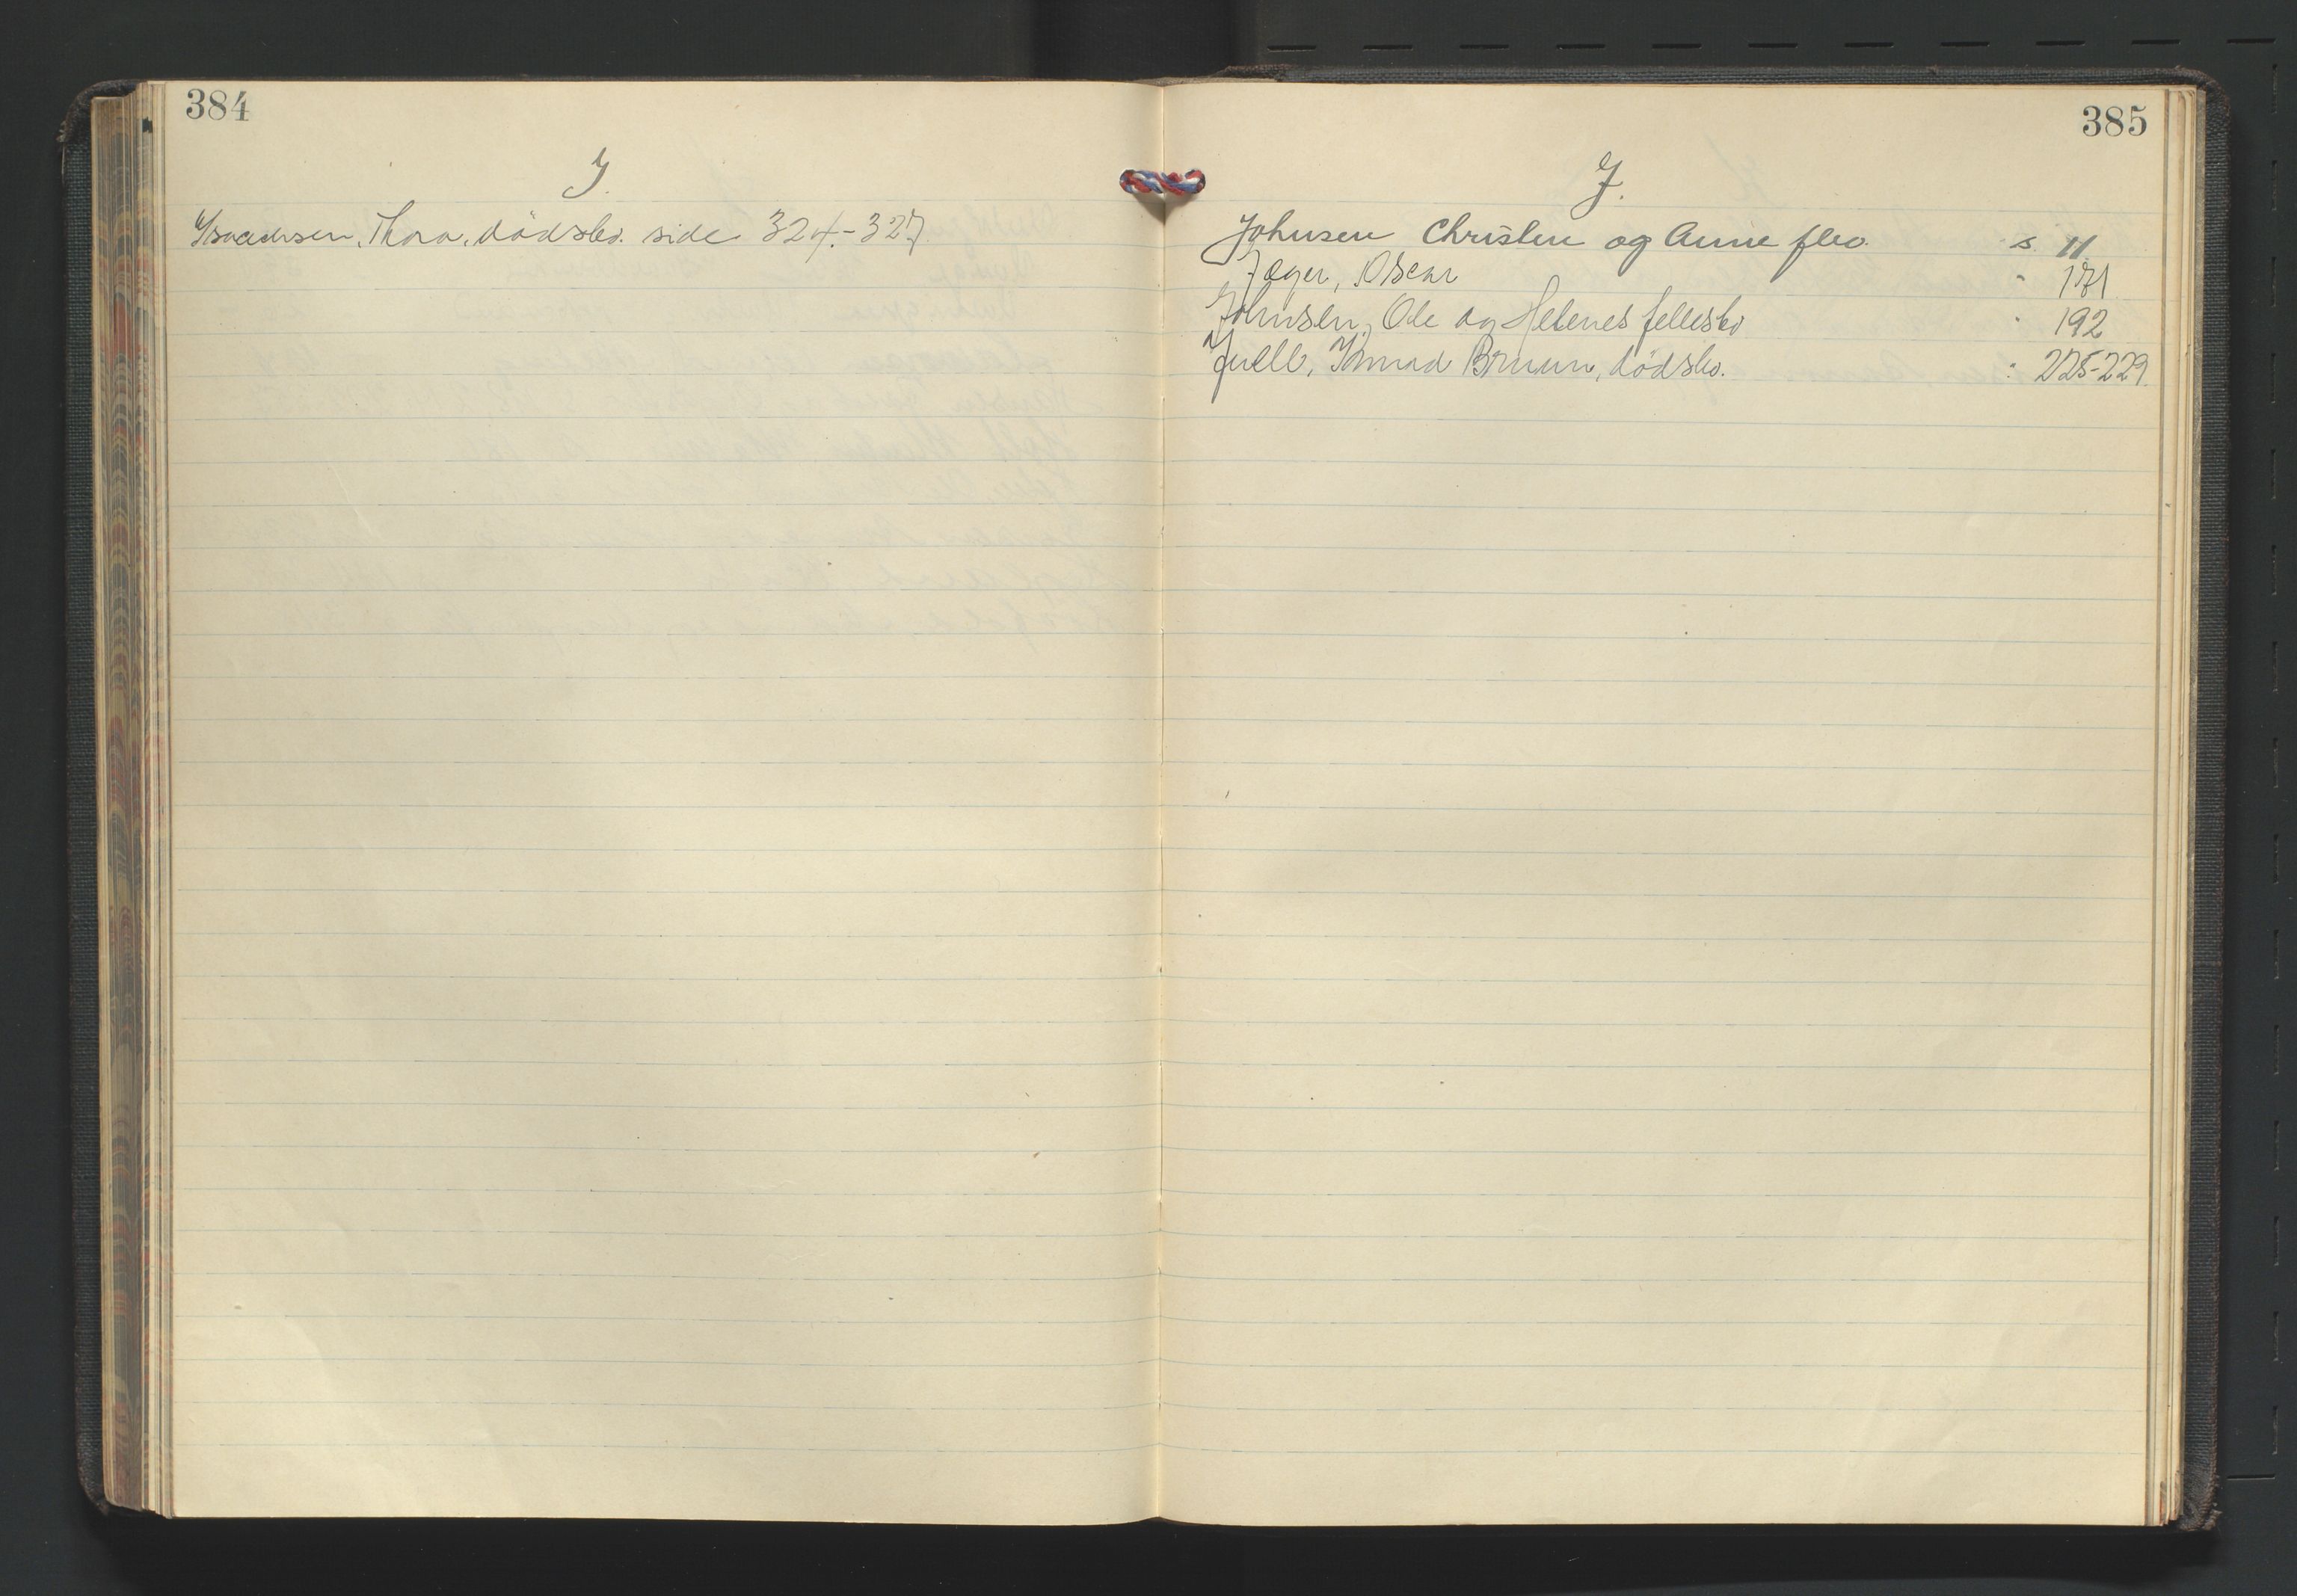 384
I.
Isaachsen, Thora, dödsbo. side 324.-327.
385
J.
Johnsen Christen og Anne flbo. s. 11.
Jæger, Oscar " 171
Johnsen, Ole og Helenes fellesbo " 192
Juell, Knud Bruun, dödsbo. " 225-229.